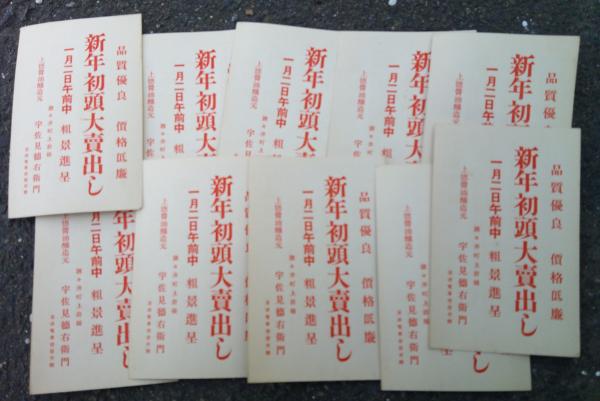 品質優良 價格低廉
新年初頭大賣出し
一月二日午前中 粗景進呈
上醤油醸造元
宇佐見德右衛門